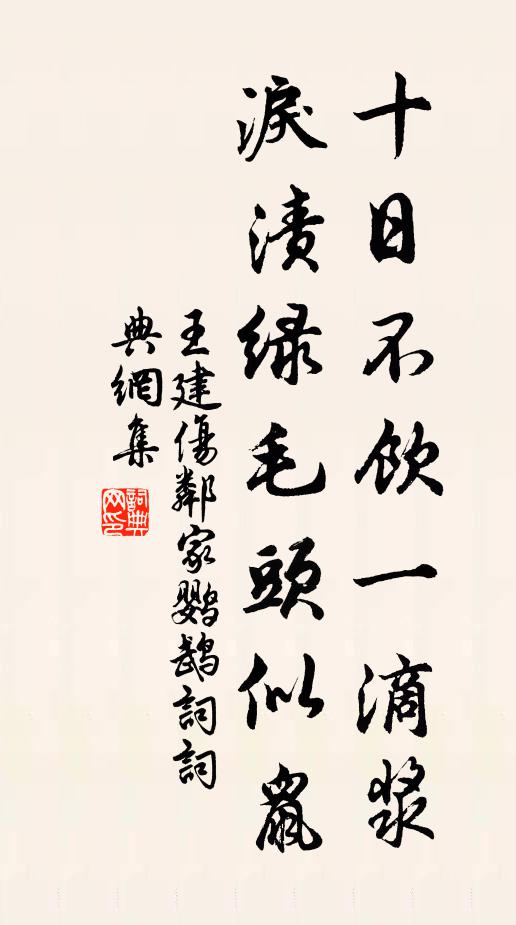 十日不飲一滴漿
淚漬緑毛頭似鼠
王建傷鄰家鹦鵡詞詞
典網集
詞典
网印